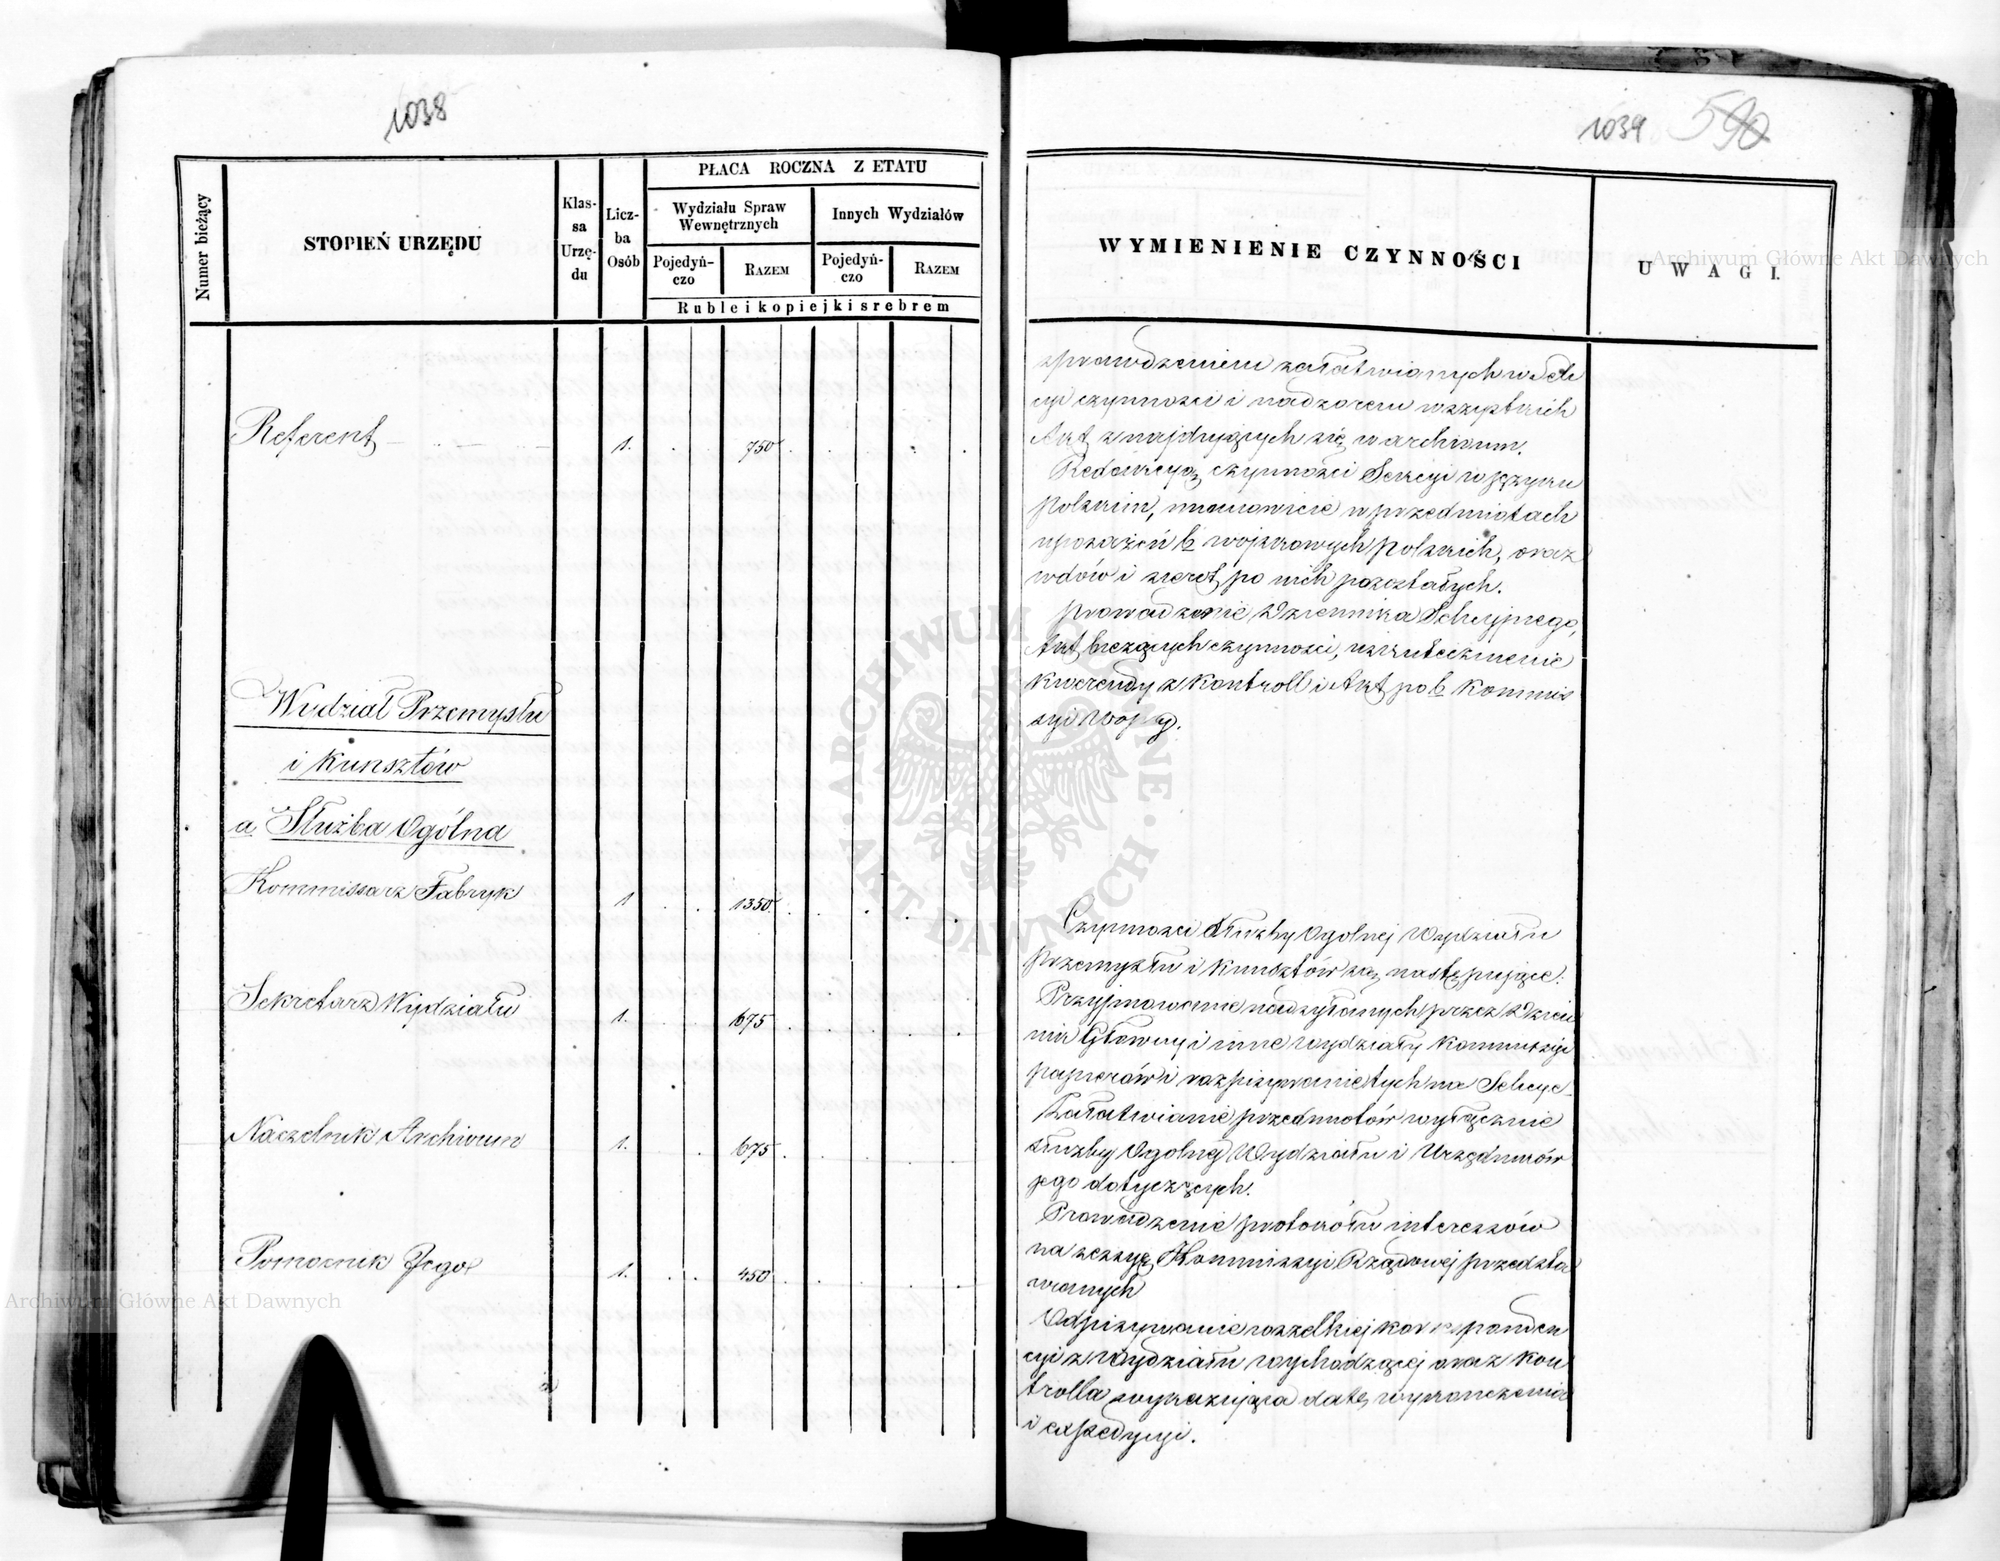 1038
Numer bieżący
STOPIEŃ URZĘDU
Klas-
sa
Urzę-
du
Licz-
ba
Osób
PŁACA ROCZNA Z ETATU
Wydziału Spraw
Wewnętrznych
Innych Wydziałów
Pojedyń-
czo
RAZEM
Pojedyń-
czo
RAZEM
Ruble i kopiejki srebrem
Referent 1. 750
Wydział Przemysłu
i Kunsztów
a. Służba Ogólna
Kommissarz Fabryk 1 1350
Sekretarz Wydziału 1. 675
Naczelnik Archiwum 1. 675
Pomocnik Jego 1. 450
1039 590
WYMIENIENIE CZYNNOŚCI
UWAGI.
sprawdzeniem załatwianych w Sek
cyi czynności i nadzorem wszystkich
Akt znajdujących się w archiwum.
Redakcyą czynności Sekcyi w języku
polskim, mianowicie w przedmiotach
uposażeń b wojskowych polskich, oraz
wdów i sierot po nich pozostałych.
prowadzenie Dziennika Sekcyjnego,
Akt bieżących czynności, uskutecznienie
kwerendy z kontroll i Akt po b Kommis
syi Wojny.
Czynności Służby Ogólnej Wydziału
Przemysłu i Kunsztów są następujące:
Przyjmowanie nadsyłanych przez Dzien
nik Główny i inne wydziały Kommissyi
papierów i rozpisywanie tych na Sekcye
Załatwianie przedmiotów wyłącznie
służby Ogólnej Wydziału i Urzędników
jego dotyczących.
Prowadzenie protokółu interessów
na sessyę Kommissyi Rządowej przedsta
wianych
Odpisywanie wszelkiej korrespondен
cyi z wydziału wychodzącej oraz kon
trolla wykazująca datę wykończenia
i expedycyi.
Archiwum Główne Akt Dawnych
Archiwum Główne Akt Dawnych
ARCHIWUM GŁÓWNE AKT DAWNYCH